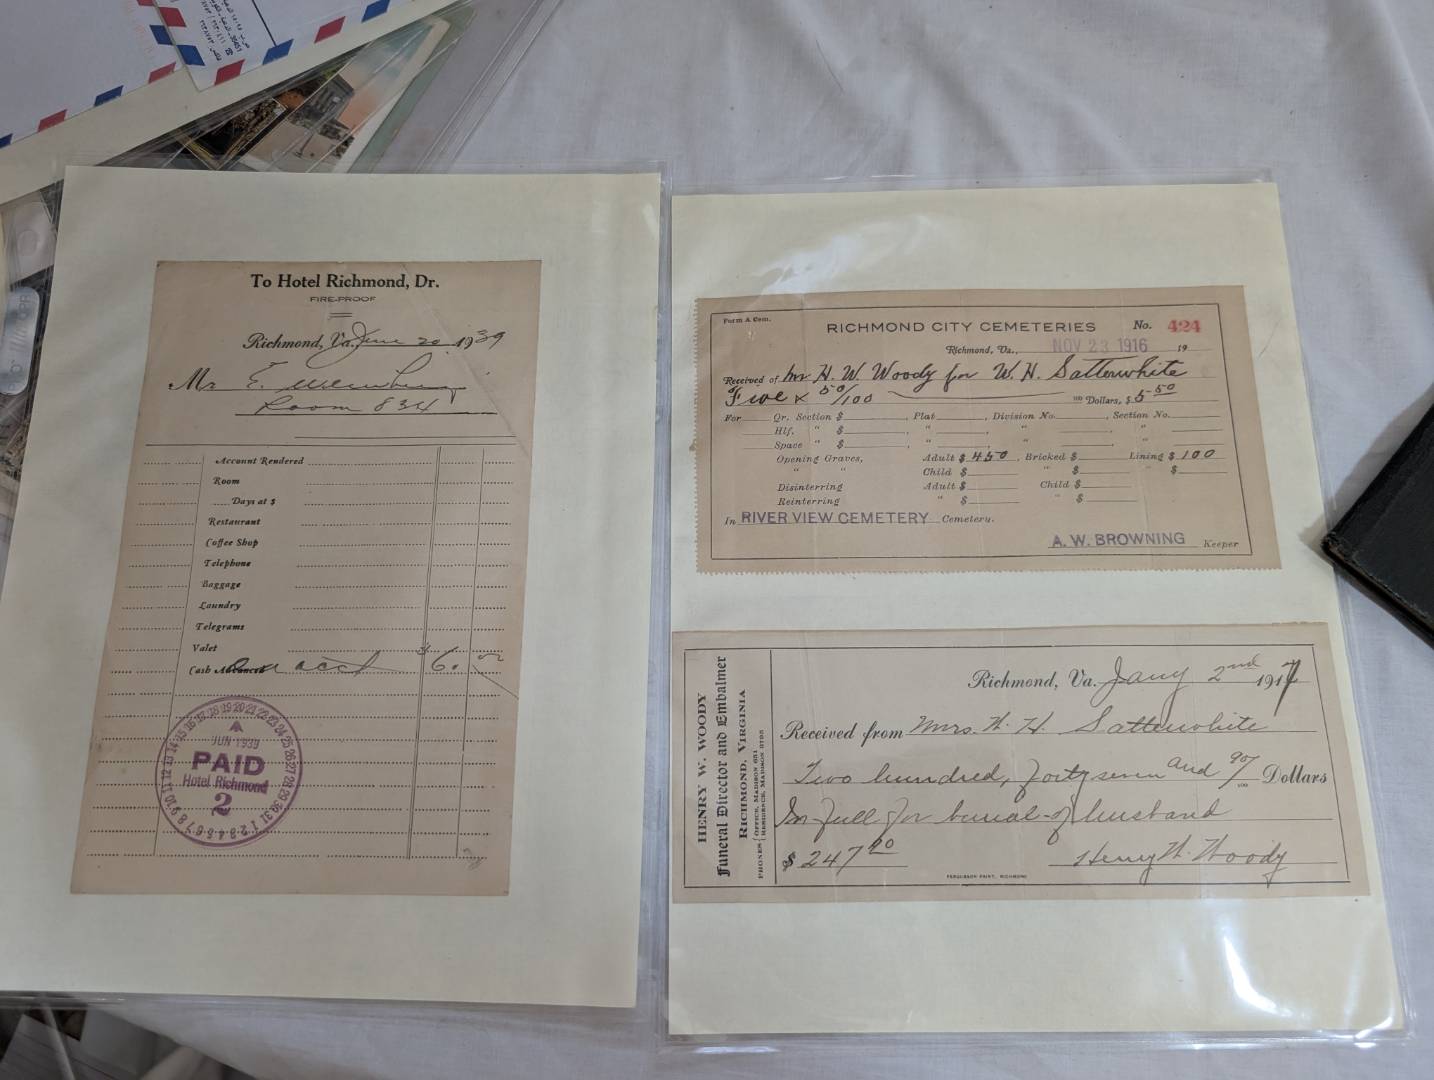 To Hotel Richmond, Dr.
FIRE-PROOF
Richmond, Va., June 20 1939
Mr E.
Room 834
Account Rendered
Room
Days at $
Restaurant
Coffee Shop
Telephone
Baggage
Laundry
Telegrams
Valet
Cash Advanced on acct $6.00
JUN 1939
PAID
Hotel Richmond
2
Form A Cem.
RICHMOND CITY CEMETERIES No. 424
Richmond, Va., NOV 23 1916 19
Received of Mr H. W. Woody for W. H. Satterwhite
Five & 50/100 Dollars, $5 50
For Qr. Section $ , Plat , Division No. , Section No.
Hlf. " $ , " " "
Space " $ , " " "
Opening Graves, Adult $ 4 50 , Bricked $ Lining $ 1 00
" " Child $ " $ $
Disinterring Adult $ Child $
Reinterring " $ " $
In RIVER VIEW CEMETERY Cemetery.
A. W. BROWNING Keeper
HENRY W. WOODY
Funeral Director and Embalmer
RICHMOND, VIRGINIA
PHONES: OFFICE, MADISON 651
RESIDENCE, MADISON
Richmond, Va. Jany 2nd 1917
Received from Mrs. W. H. Satterwhite
Two hundred, forty seven and 90/100 Dollars
In full for burial of husband
$ 247 90 Henry W. Woody
FERGUSSON PRINT, RICHMOND